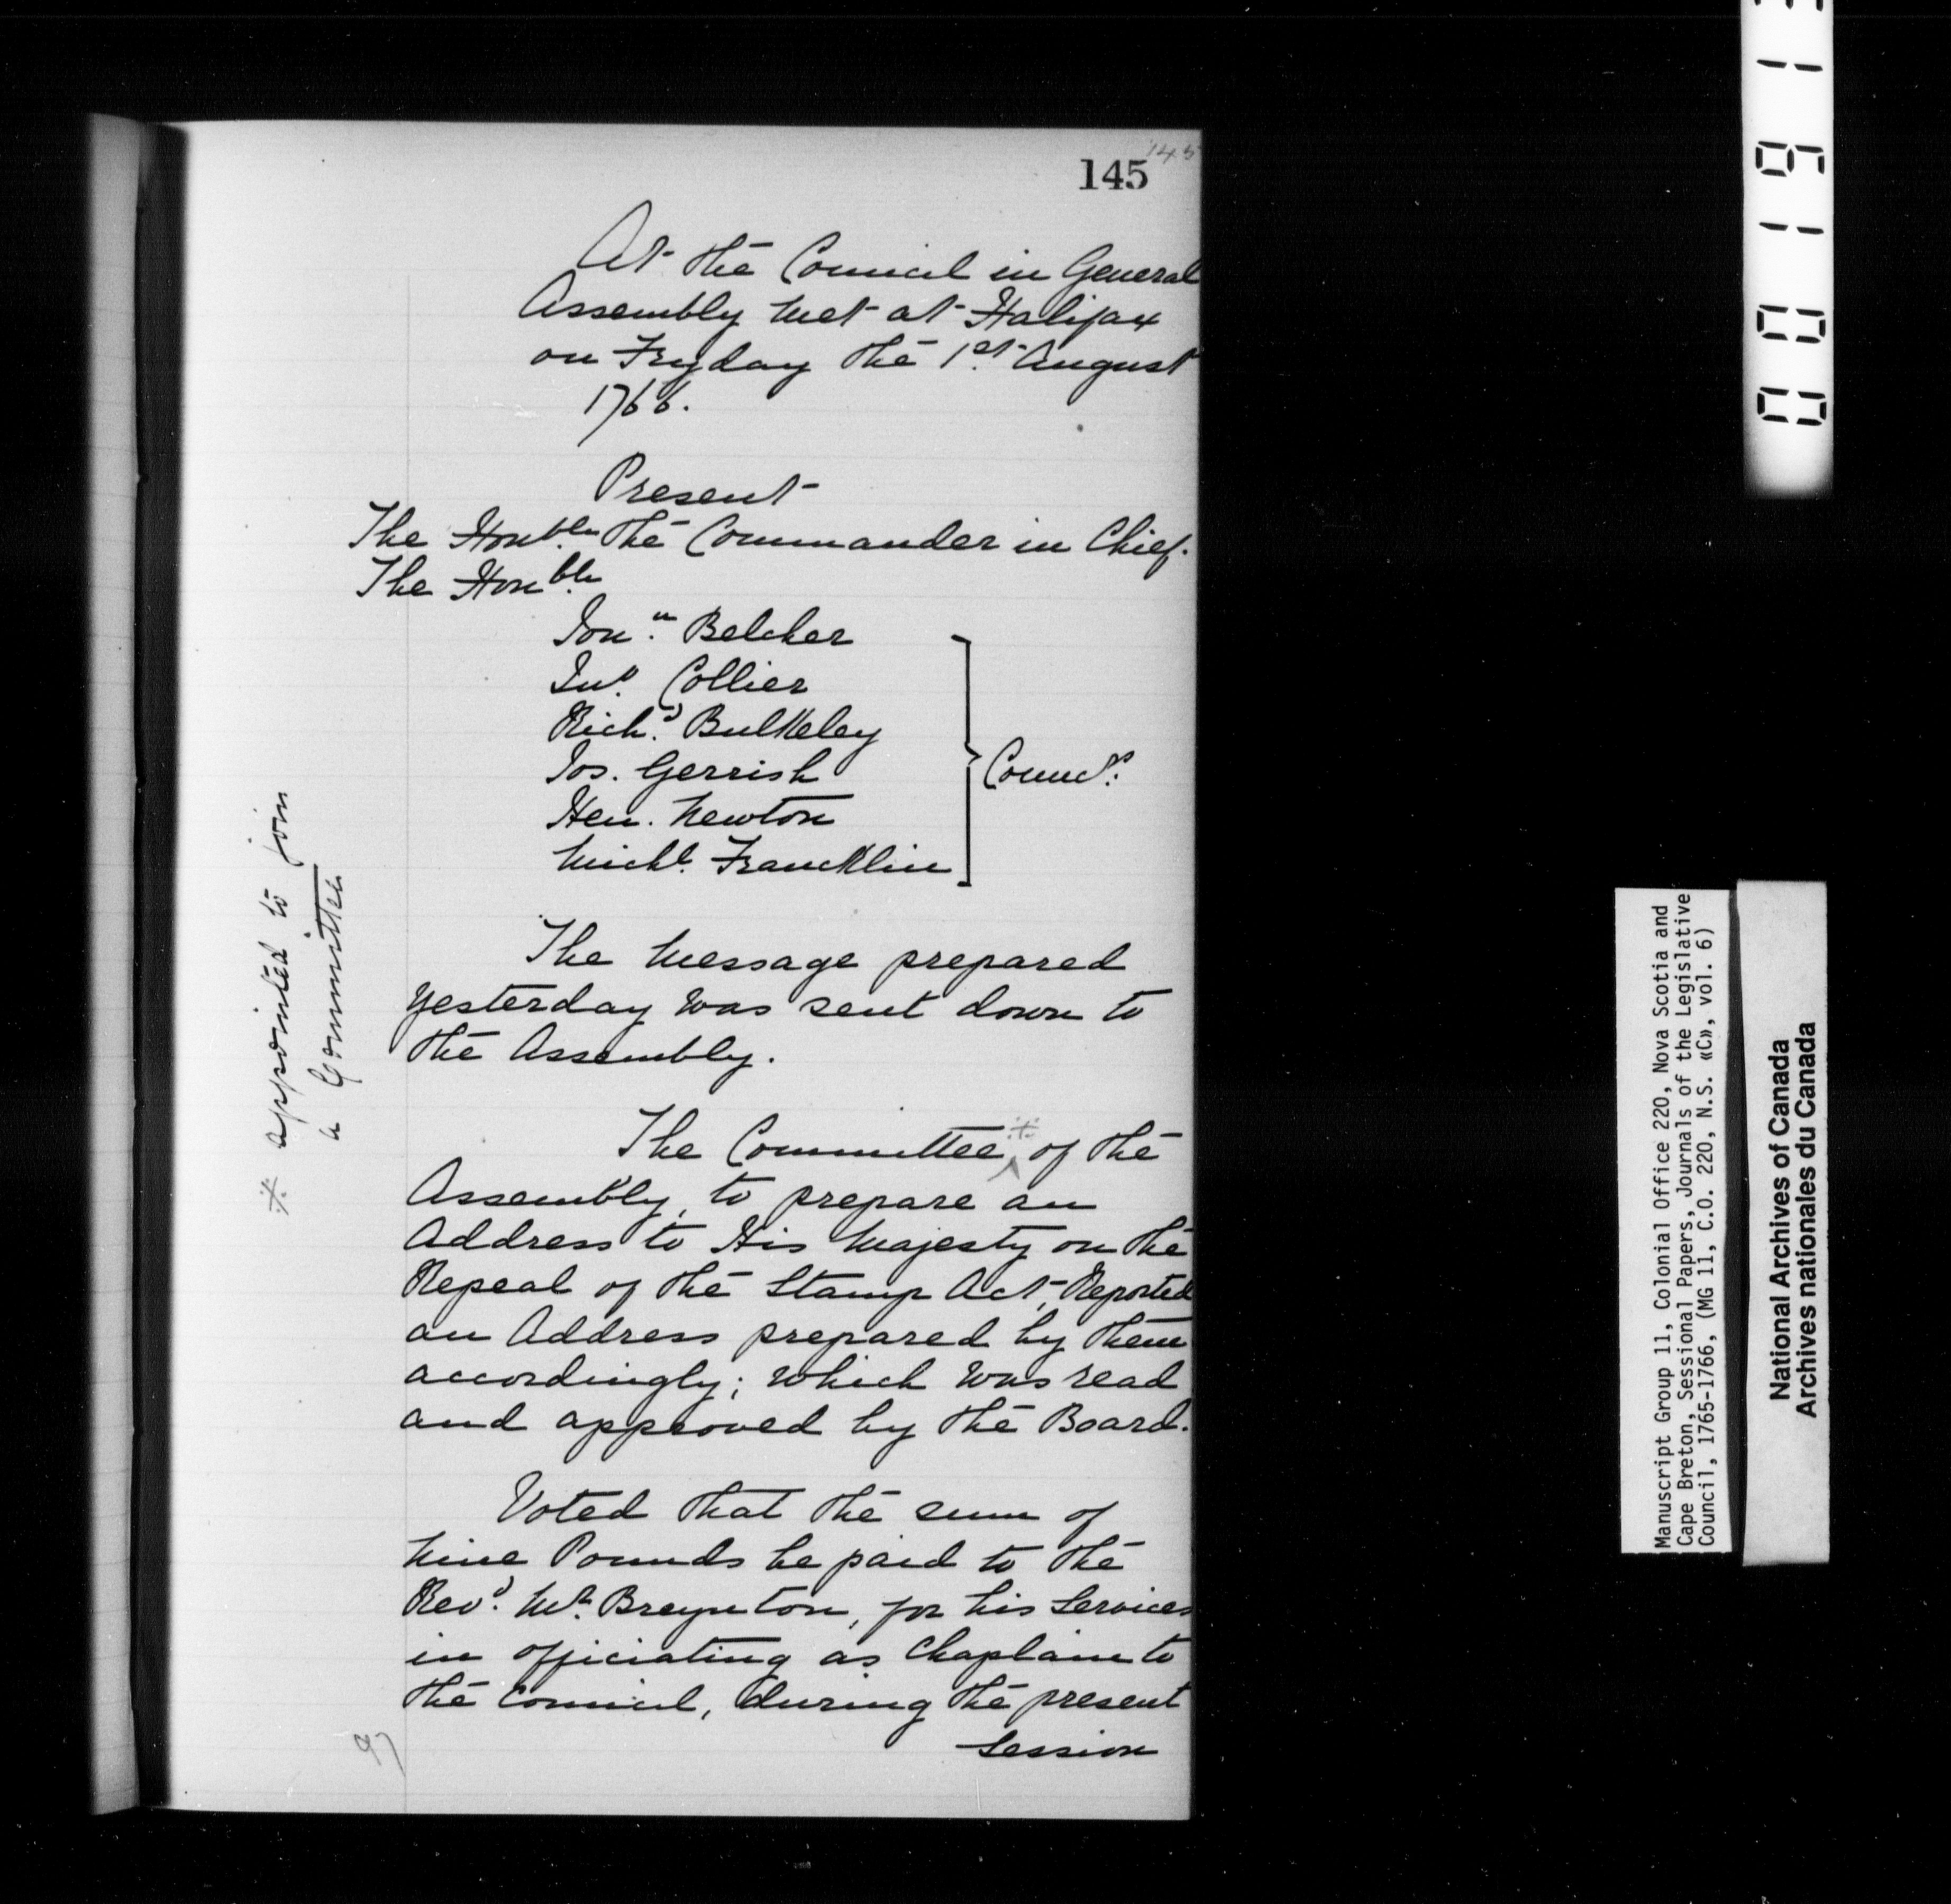 145
145
At the Council in General
Assembly met at Halifax
on Fryday the 1st. August
1766.
Present
The Honble. the Commander in Chief.
The Honble.
Jonn. Belcher
Jno. Collier
Richd. Bulkeley
Jos. Gerrish
Hen. Newton
Michl. Francklin
Councrs.
The Message prepared
yesterday was sent down to
the Assembly.
The Committee * of the
Assembly, to prepare an
Address to His Majesty on the
Repeal of the Stamp Act, Reported
an Address prepared by them
accordingly; which was read
and approved by the Board.
Voted that the sum of
Nine Pounds be paid to the
Revd. Mr. Breynton, for his Services
in officiating as Chaplain to
the Council, during the present
Session
97
* appointed to join
a Committee
Manuscript Group 11, Colonial Office 220, Nova Scotia and
Cape Breton, Sessional Papers, Journals of the Legislative
Council, 1765-1766, (MG 11, C.O. 220, N.S. «C», vol. 6)
National Archives of Canada
Archives nationales du Canada